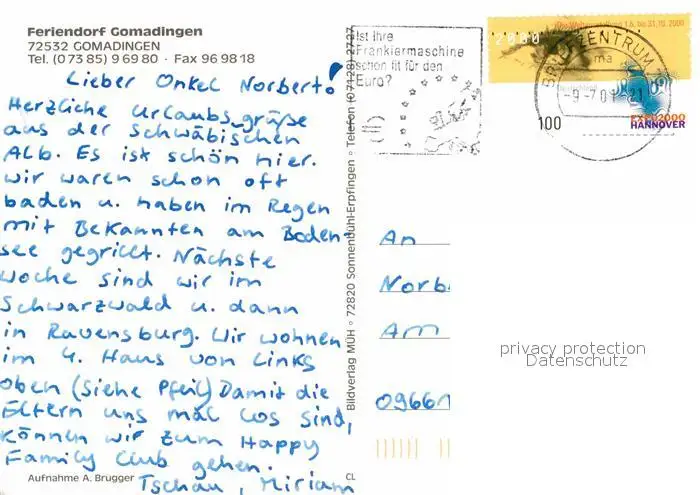 Feriendorf Gomadingen
72532 GOMADINGEN
Tel. (0 73 85) 9 69 80 · Fax 96 98 18
Lieber Onkel Norbert!
Herzliche Urlaubsgrüße
aus der Schwäbischen
Alb. Es ist schön hier.
Wir waren schon oft
baden u. haben im Regen
mit Bekannten am Boden-
see gegrillt. Nächste
Woche sind wir im
Schwarzwald u. dann
in Ravensburg. Wir wohnen
im 4. Haus von Links
oben (Siehe Pfeil) Damit die
Eltern uns mal los sind,
können wir zum Happy
Family Club gehen.
Tschau, Miriam
Aufnahme A. Brugger
CL
Bildverlag MÜH • 72820 Sonnenbühl-Erpfingen • Telefon (07128) 27 27
Ist Ihre
Frankiermaschine
schon fit für den
Euro?
Expo-Weltausstellung 1.6. bis 31.10.2000
2000
BRIEFZENTRUM
-9-7.01-21
100
EXPO2000
HANNOVER
An
Norb
Am
09661
privacy protection
Datenschutz